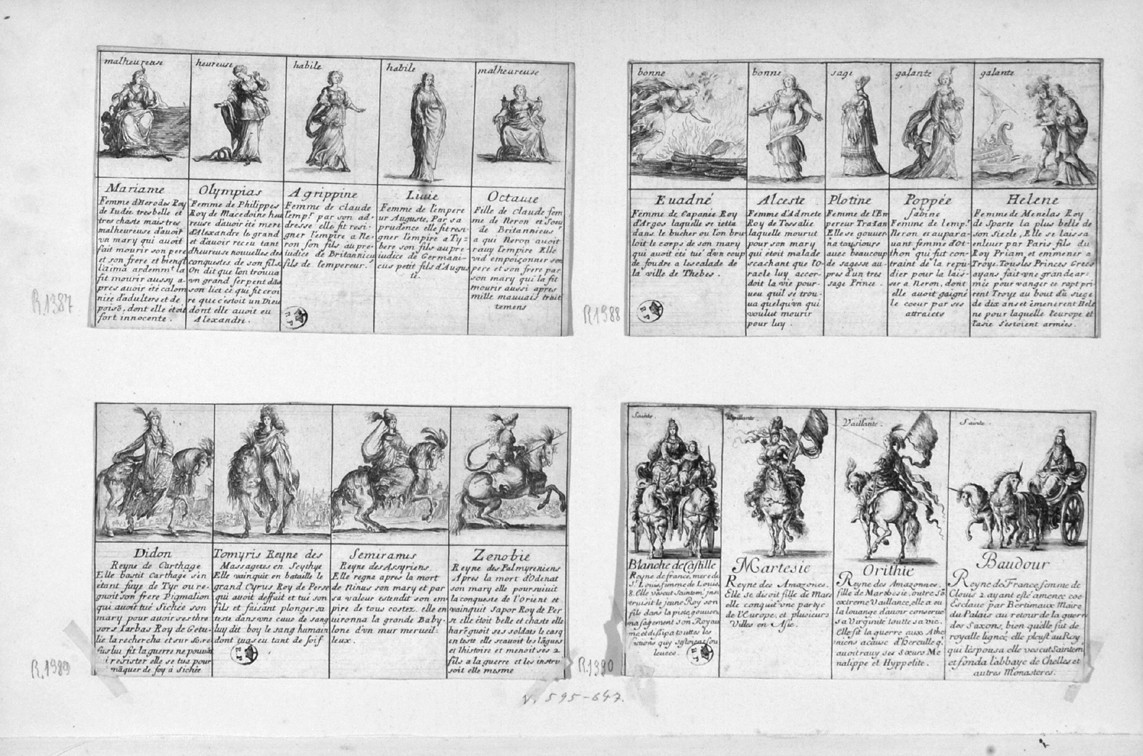 malheureuse
Mariame
Femme d'Herodes Roy
de Iudée, tres belle et
tres chaste mais tres
malheureuse d'auoir
vn mary qui auoit
fait mourir son pere
et son frere et bien qu'il
l'aima ardemmt. la
fit mourir aussy a
pres auoir eté calom
niée d'adulteres et de
poisō, dont elle étoit
fort innocente.
heureuse
Olympias
Femme de Philippes
Roy de Macedoine heu
reuse d'auoir été mere
d'Alexandre le grand
et d'auoir receu tant
d'heureuses nouuelles des
conquestes de son fils
On dit que l'on trouua
vn grand serpent dās
son lict ce qui fit croi
re que c'estoit un Dieu
dont elle auoit eu
Alexandre.
habile
Agrippine
Femme de claude
empr. par son ad-
dresse elle fit resi-
gner l'empire a Ne-
ron son fils au pre-
iudice de Britannicus
fils de l'empereur.
habile
Liuie
Femme de l'empere
ur Auguste, Par sa
prudence elle fit resi-
gner l'empire a Ty-
bere son fils au pre
iudice de Germani-
cus petit fils d'Augus
te.
malheureuse
Octauie
Fille de claude fem
me de Neron et Soeur
de Britannicus
a qui Neron auoit
rauy l'empire Elle
vid empoiçonner son
pere et son frere par
son mary qui la fit
mourir aussi apres
mille mauuais trait
temens
R.1387
bonne
Euadné
Femme de Capanée Roy
d'Argos laquelle se ietta
dans le bucher ou l'on bru
loit le corps de son mary
qui auoit eté tué d'un coup
de foudre a l'escalade de
la ville de Thebes.
bonne
Alceste
Femme d'Admete
Roy de Tessalie
laquelle mourut
pour son mary
qui étoit malade
scachant que l'O-
racle luy accor-
doit la vie pour-
ueu qu'il se trou-
ua quelqu'vn qui
voulut mourir
pour luy.
sage
Plotine
Femme de l'Em
pereur Traian
Elle se gouuer
na tousiours
auec beaucoup
de sagesse au
pres d'un tres
sage Prince.
galante
Poppée
Sabine
Femme de l'emp.
Neron, et aupara-
uant femme d'Ot-
thon qui fut con-
traint de la repu-
dier pour la lais-
ser a Neron, dont
elle auoit gaigné
le coeur par ses
attraicts
galante
Helene
Femme de Menelas Roy
de Sparte la plus belle de
son Siecle, Elle se laissa
enleuer par Paris fils du
Roy Priam, et emmener a
Troye, Tous les Princes Grecs
ayans fait vne grande ar-
mée pour vanger ce rapt pri-
rent Troye au bout du siege
de dix ans et emenerent Hele
ne pour laquelle l'Europe et
l'asie s'estoient armées.
R.1388
Didon
Reyne de Carthage
Elle bastit Carthage s'en
etant fuye de Tyr ou re-
gnoit son frere Pigmalion
qui auoit tué Sichée son
mary pour auoir ses thre
sors. Iarbas Roy de Getu-
lie la rechercha et sur
fus luy fit la guerre ne pouuāt
y resister elle se tua pour ne
māquer de foy a Sichée
Tomyris Reyne des
Massagetes en Scythye
Elle vainquit en bataille le
grand Cyrus Roy de Perse
qui auoit deffait et tué son
fils et faisant plonger sa
teste dans vne cuue de sang
luy dit boy le sang humain
dont tu as eu tant de soif
Semiramis
Reyne des Assyriens.
Elle regna apres la mort
de Ninus son mary et par
sa valeur estendit son em
pire de tous costez. elle en
uironna la grande Baby-
lone d'vn mur merueil-
leux.
Zenobie
Reyne des Palmyreniens
Apres la mort d'Odenat
son mary elle poursuiuit
la conqueste de l'orient et
vainquit Sapor Roy de Per
se elle étoit belle et chaste elle
harāgnoit ses soldats le casq
en teste elle scauoit les lāgues
et l'histoire et menoit ses 2
fils a la guerre et les instru
soit elle mesme
R.1389
Saincte
Blanche de Castille
Reyne de france, mere de
St. Louis femme de Louis
8. Elle vescut Saintemt. ins
truisit le jeune Roy son
fils dans la pieté, gouuerna
sagement son Royau
me et dissipa touttes les
Vaillante
Martesie
Reyne des Amazones.
Elle se disoit fille de Mars
elle conquit vne partye
de l'Europe, et plusieurs
Villes en Asie.
Vaillante.
Orithie
Reyne des Amazones.
fille de Martesie, outre Sō
extreme Vaillance, elle a eu
la louange d'auoir conserué
sa Virginité toutte sa vie.
Elle fit la guerre aux Athe
niens a cause d'Hercule q.
auoit rauy ses Sœurs Me
nalippe et Hyppolite.
Sainte
Baudour
Reyne de France, femme de
Clouis 2 ayant esté amenée cōe
Esclaue par Bertinaux Maire
du Palais au retour de la guerre
des Saxons, bien qu'elle fut de
royalle lignée, elle pleust au Roy
qui l'espousa elle vescut Saintem
et fonda l'abbaye de Chelles et
autres Monasteres.
R.1390
v. 595-647.